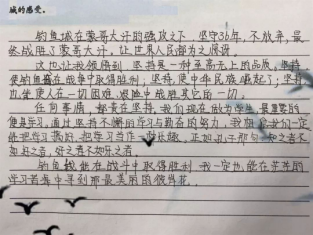 城的感受。
钓鱼城在蒙哥大汗的强攻之下,坚守36年,不放弃,最
终战胜了蒙哥大汗,让世界人民都为之震惊。
这也让我领悟到,坚持是一种至高无上的品质,坚持
使钓鱼城在战争中取得胜利;坚持,使中华民族崛起了;坚持
也能使人在一切困难、艰险中战胜其它的一切。
任何事情,都贵在坚持,我们现在做为学生,最重要的
便是学习,通过坚持不懈的学习与勤奋的努力,我相信我们一定
能把学习搞好,把学习当作一种乐趣,正如孔子那句:知之者不
如好之者,好之者不如乐之者。
钓鱼城能在战斗中取得胜利,我一定也能在茫茫的
学习苦海中寻到那最美丽的彼岸花。